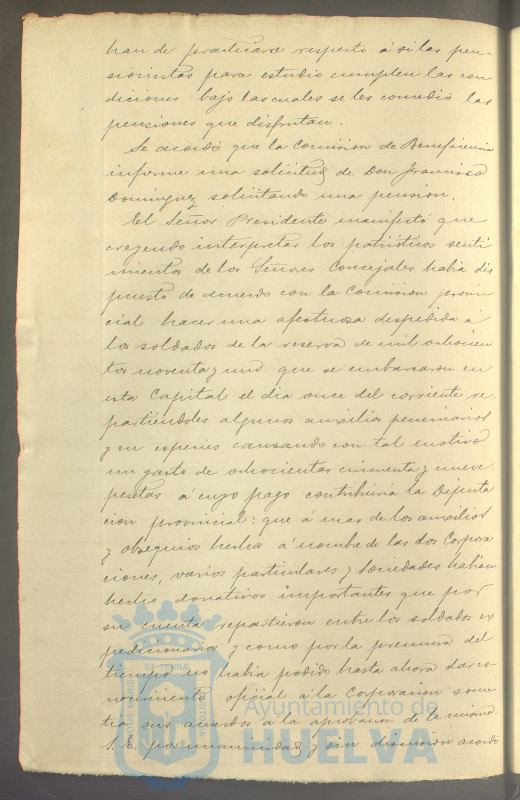 han de practicarse respecto á si las pen-
sionistas para estudio cumplen las con
diciones bajo las cuales se les concedió las
pensiones que disfrutan.
Se acordó que la Comision de Beneficencia
informe una solicitud de Don Francisco
Dominguez solicitando una pension.
El Señor Presidente manifestó que
creyendo interpretar los patrióticos senti
mientos de los Señores Concejales habia dis
puesto de acuerdo con la Comision provin
cial hacer una afectuosa despedida á
los soldados de la reserva de mil ochocien
tos noventa y uno que se embarcaron en
esta Capital el dia once del corriente re-
partiéndoles algunos auxilios pecuniarios
y en especies causando con tal motivo
un gasto de ochocientas cincuenta y nueve
pesetas á cuyo pago contribuiria la Diputa
cion provincial: que á mas de los auxilios
y obsequios hechos á nombre de las dos Corpora
ciones, varios particulares y Sociedades habian
hecho donativos importantes que por
su cuenta repartieron entre los soldados ex
pedicionarios y como por la premura del
tiempo no habia podido hasta ahora dar co-
nocimiento oficial á la Corporacion some
tia sus acuerdos á la aprobacion de la misma.
S. E. por unanimidad y sin discusion acordó
Ayuntamiento de
HUELVA